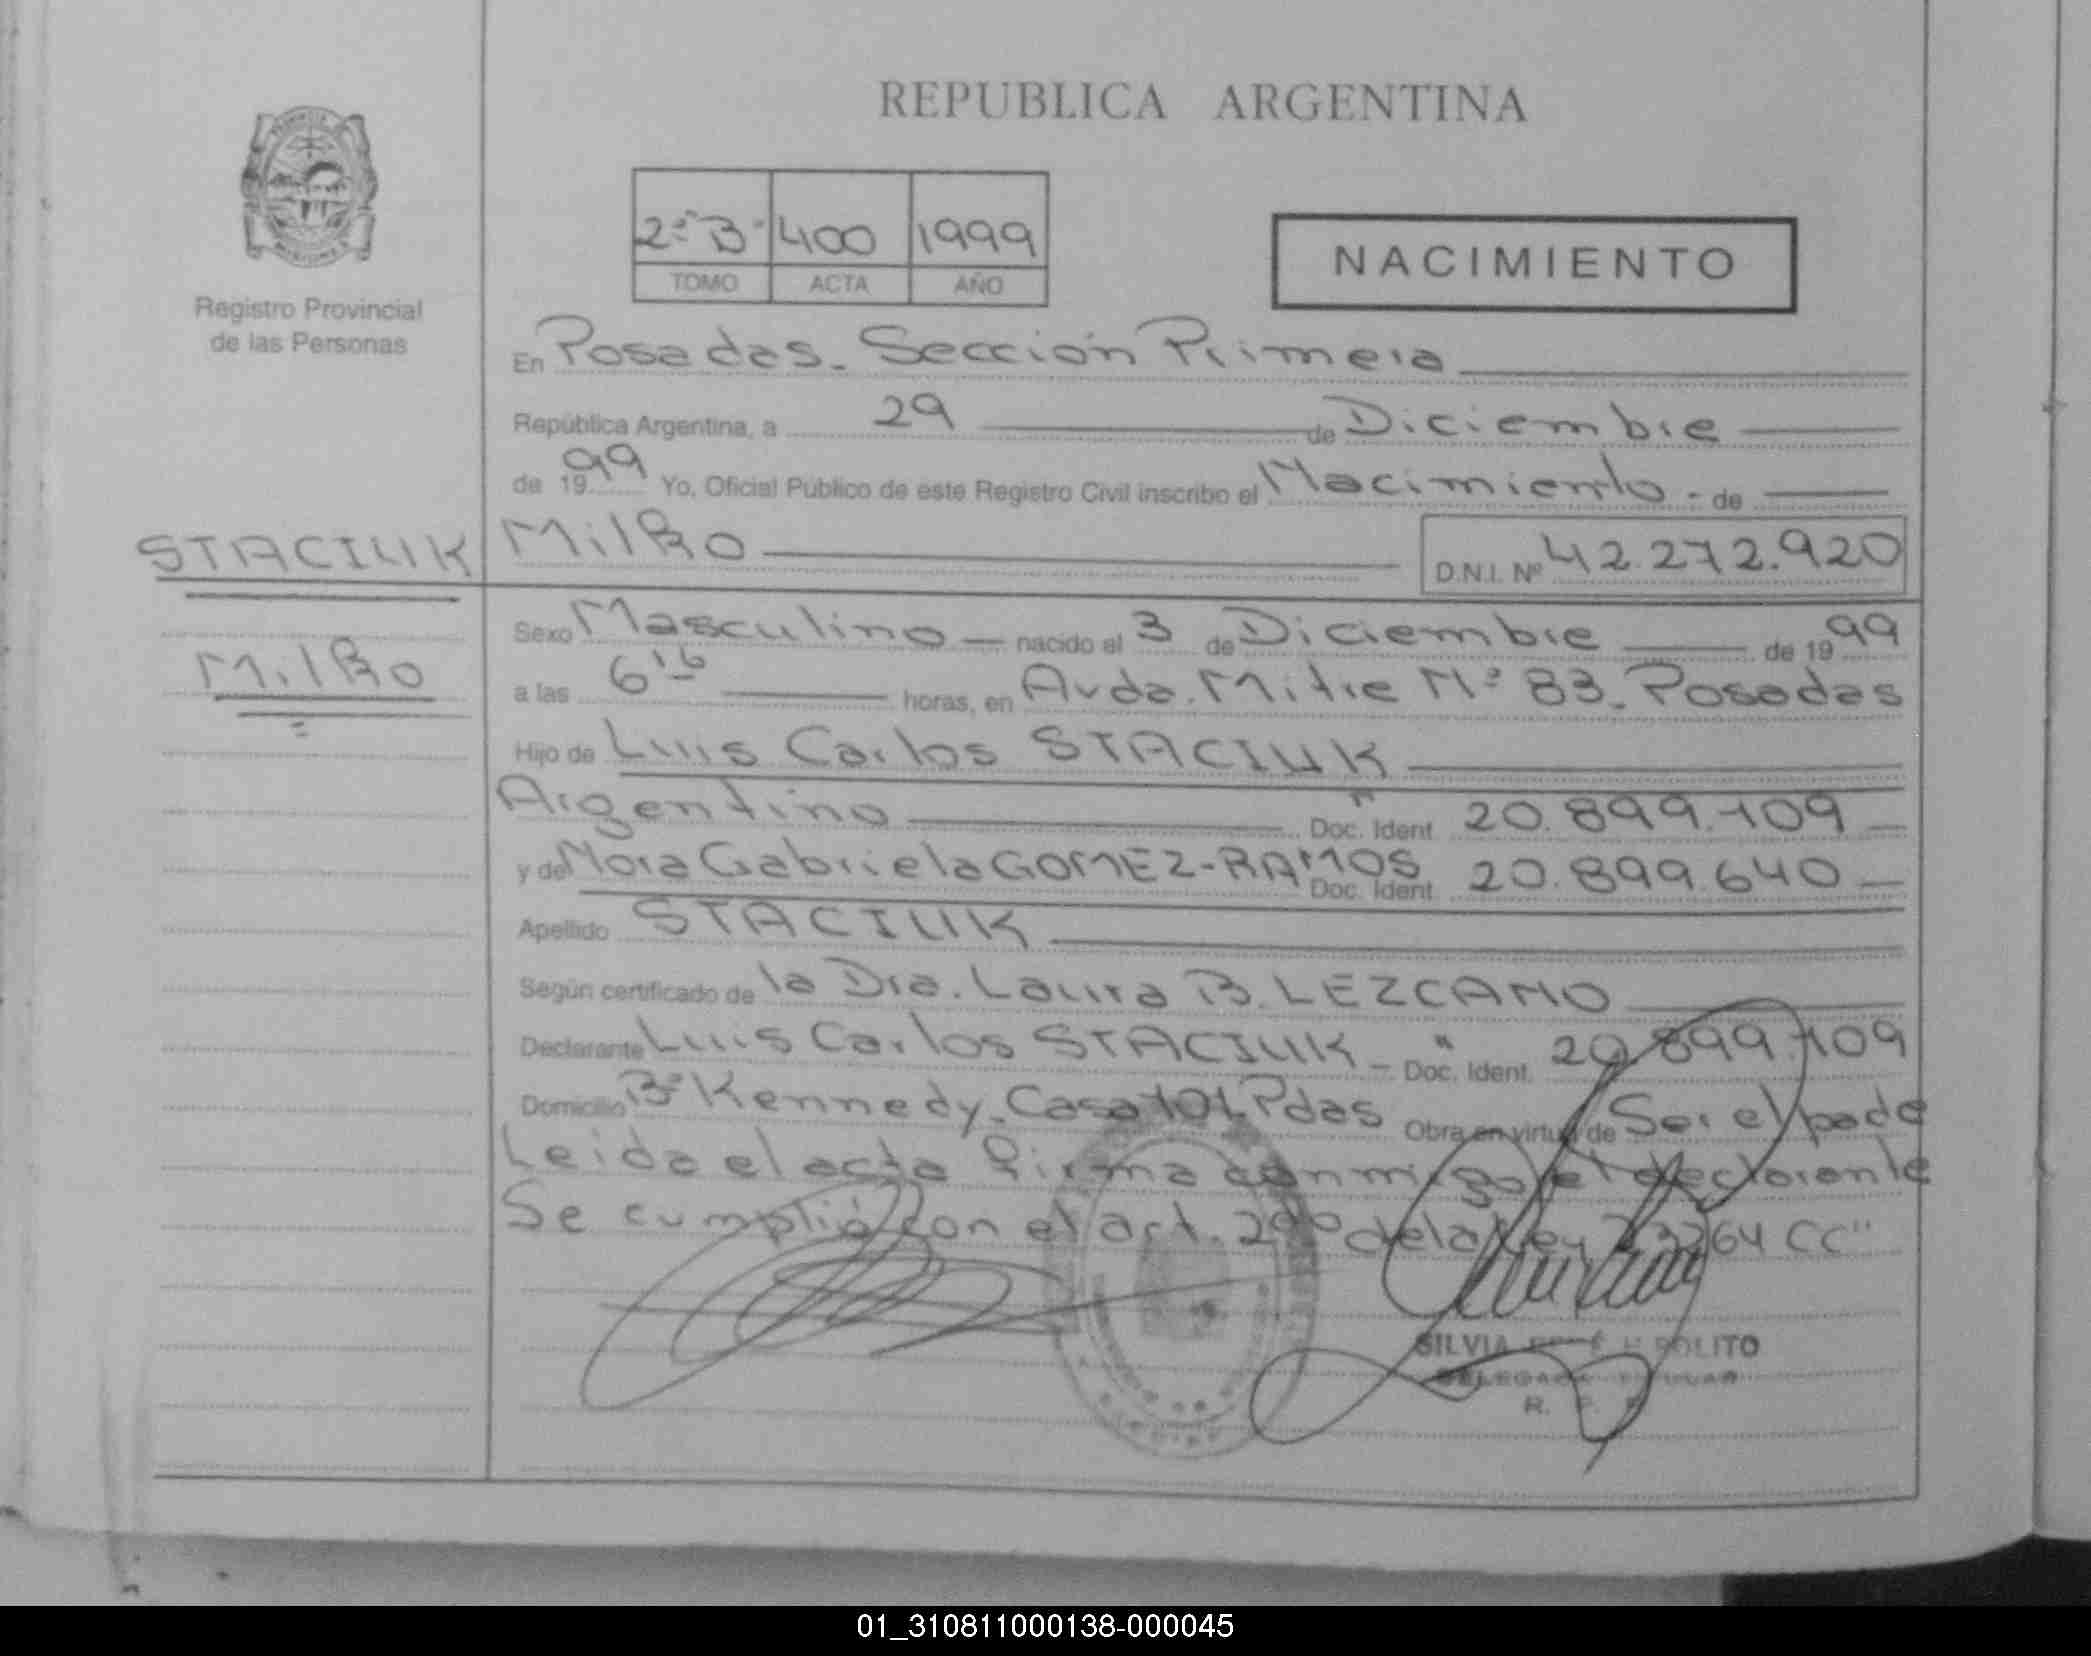 REPUBLICA ARGENTINA
2º "B" 400 1999
TOMO ACTA AÑO
NACIMIENTO
Registro Provincial
de las Personas
En Posadas - Sección Primera
República Argentina, a 29 de Diciembre
de 19 99 Yo, Oficial Público de este Registro Civil inscribo el Nacimiento - de
STACIUK
Milko
D.N.I. Nº 42.272.920
Milko
Sexo Masculino nacido el 3 de Diciembre de 19 99
a las 6 16 horas, en Avda. Mitre Nº 83 - Posadas
Hijo de Luis Carlos STACIUK
Argentino Doc. Ident. 20.899.109
y de Nora Gabriela GOMEZ-RAMOS Doc. Ident. 20.899.640
Apellido STACIUK
Según certificado de la Dra. Laura B. LEZCANO
Declarante Luis Carlos STACIUK - Doc. Ident. 20.899.109
Domicilio Bº Kennedy - Casa 101 Pdas Obra en virtud de Ser el padre
Leida el acta firma conmigo el declarante
Se cumplió con el art. de la Ley 23264 CC"
SILVIA
DELEGADA TITULAR
R. P.
01_310811000138-000045